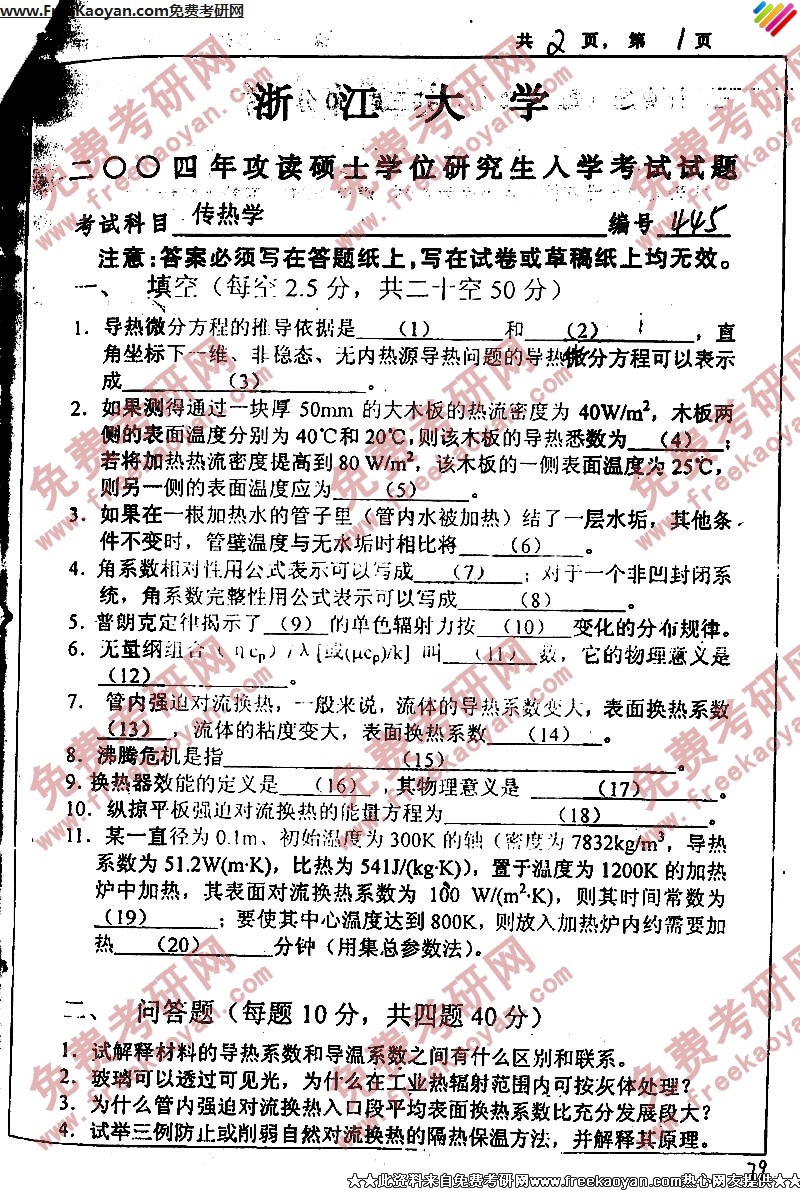 www.FreeKaoyan.com免费考研网
共 2 页, 第 1 页
浙 江 大 学
二〇〇四年攻读硕士学位研究生入学考试试题
考试科目 传热学 编号 445
注意:答案必须写在答题纸上,写在试卷或草稿纸上均无效。
一、 填空（每空 2.5 分，共二十空 50 分）
1. 导热微分方程的推导依据是 （1） 和 （2） ，直
角坐标下一维、非稳态、无内热源导热问题的导热微分方程可以表示
成 （3） 。
2. 如果测得通过一块厚 50mm 的大木板的热流密度为 40W/m²，木板两
侧的表面温度分别为 40℃和 20℃,则该木板的导热悉数为 （4） ；
若将加热热流密度提高到 80 W/m²，该木板的一侧表面温度为 25℃，
则另一侧的表面温度应为 （5） 。
3. 如果在一根加热水的管子里（管内水被加热）结了一层水垢，其他条
件不变时，管壁温度与无水垢时相比将 （6） 。
4. 角系数相对性用公式表示可以写成 （7） ；对于一个非凹封闭系
统，角系数完整性用公式表示可以写成 （8） 。
5. 普朗克定律揭示了 （9） 的单色辐射力按 （10） 变化的分布规律。
6. 无量纲组合（ηcₚ）/λ [或(μcₚ)/k] 叫 （11） 数，它的物理意义是
（12） 。
7. 管内强迫对流换热，一般来说，流体的导热系数变大，表面换热系数
（13） ，流体的粘度变大，表面换热系数 （14） 。
8. 沸腾危机是指 （15） 。
9. 换热器效能的定义是 （16） ，其物理意义是 （17） 。
10. 纵掠平板强迫对流换热的能量方程为 （18） 。
11. 某一直径为 0.1m、初始温度为 300K 的轴（密度为 7832kg/m³，导热
系数为 51.2W(m·K)，比热为 541J/(kg·K)），置于温度为 1200K 的加热
炉中加热，其表面对流换热系数为 100 W/(m²·K)，则其时间常数为
（19） ；要使其中心温度达到 800K，则放入加热炉内约需要加
热 （20） 分钟（用集总参数法）。
二、 问答题（每题 10 分，共四题 40 分）
1. 试解释材料的导热系数和导温系数之间有什么区别和联系。
2. 玻璃可以透过可见光，为什么在工业热辐射范围内可按灰体处理？
3. 为什么管内强迫对流换热入口段平均表面换热系数比充分发展段大？
4. 试举三例防止或削弱自然对流换热的隔热保温方法，并解释其原理。
79
★★此资料来自免费考研网www.freekaoyan.com热心网友提供★★